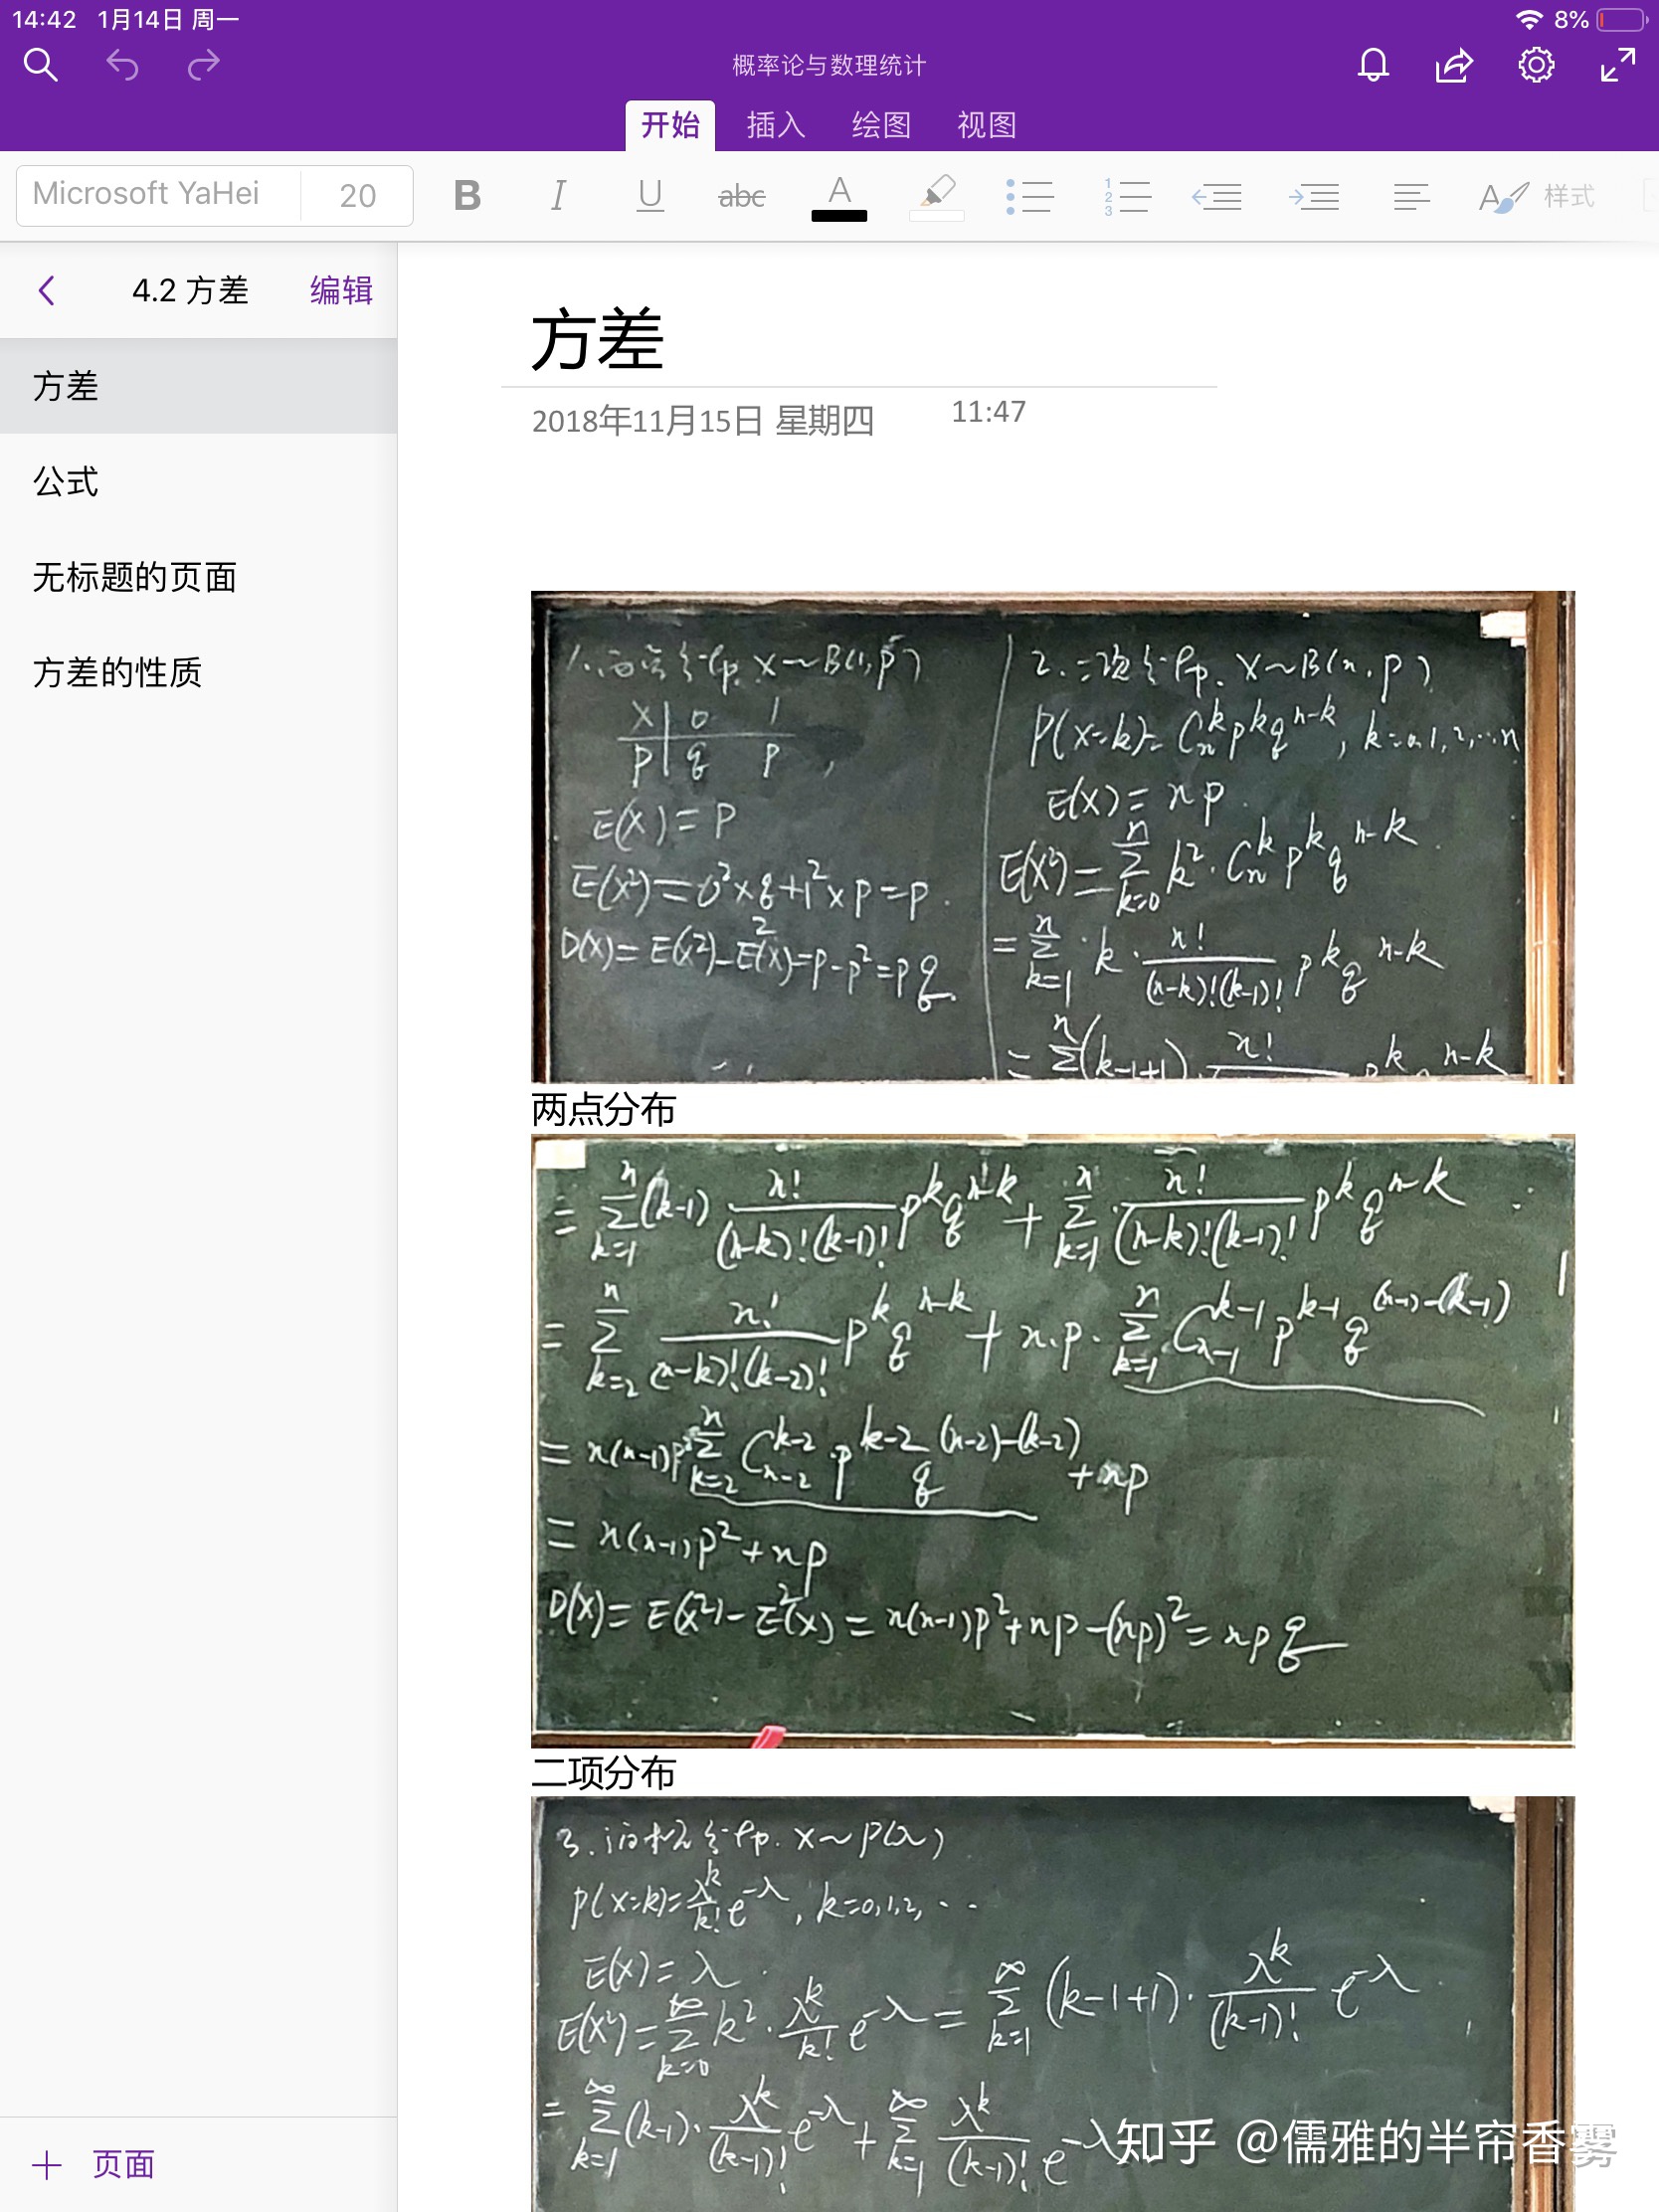 14:42 1月14日 周一
8%
概率论与数理统计
开始 插入 绘图 视图
Microsoft YaHei 20 B I U abc A 样式
4.2 方差 编辑
方差
公式
无标题的页面
方差的性质
方差
2018年11月15日 星期四 11:47
1. 两点分布. X~B(1,p)
X | 0 1
P | q p ,
E(X)=P
E(X²)=0²×q+1²×p=p.
D(X)=E(X²)-E²(X)=p-p²=pq.
2. 二项分布. X~B(n,p)
P(X=k)=C_n^k p^k q^{n-k}, k=0,1,2,…n
E(X)=np.
E(X²)=∑_{k=0}^n k²·C_n^k p^k q^{n-k}.
=∑_{k=1}^n ·k·n!/((n-k)!(k-1)!) p^k q^{n-k}
=∑(k-1+1) n! p^k n-k
两点分布
=∑_{k=1}^n (k-1) n!/((n-k)!(k-1)!) p^k q^{n-k}+∑_{k=1}^n n!/((n-k)!(k-1)!) p^k q^{n-k}
=∑_{k=2}^n n!/((n-k)!(k-2)!) p^k q^{n-k}+n·p·∑_{k=1}^n C_{n-1}^{k-1} p^{k-1} q^{(n-1)-(k-1)}
=n(n-1)p²∑_{k=2}^n C_{n-2}^{k-2} p^{k-2} q^{(n-2)-(k-2)}+np
=n(n-1)p²+np
D(X)=E(X²)-E²(X)=n(n-1)p²+np-(np)²=npq
二项分布
3. 泊松分布. X~P(λ)
P(X=k)=λ^k/k! e^{-λ}, k=0,1,2,…
E(X)=λ.
E(X²)=∑_{k=0}^∞ k²·λ^k/k! e^{-λ}=∑_{k=1}^∞ (k-1+1)·λ^k/(k-1)! e^{-λ}
=∑_{k=1}^∞ (k-1)·λ^k/(k-1)! e^{-λ}+∑_{k=1}^∞ λ^k/(k-1)! e^{-λ}
知乎 @儒雅的半帘香雾
页面